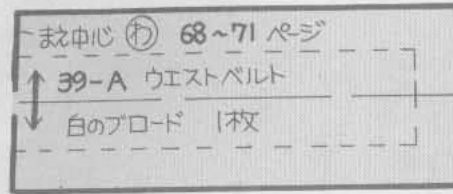 まえ中心 わ 68~71 ページ
39-A ウエストベルト
白のブロード 1枚